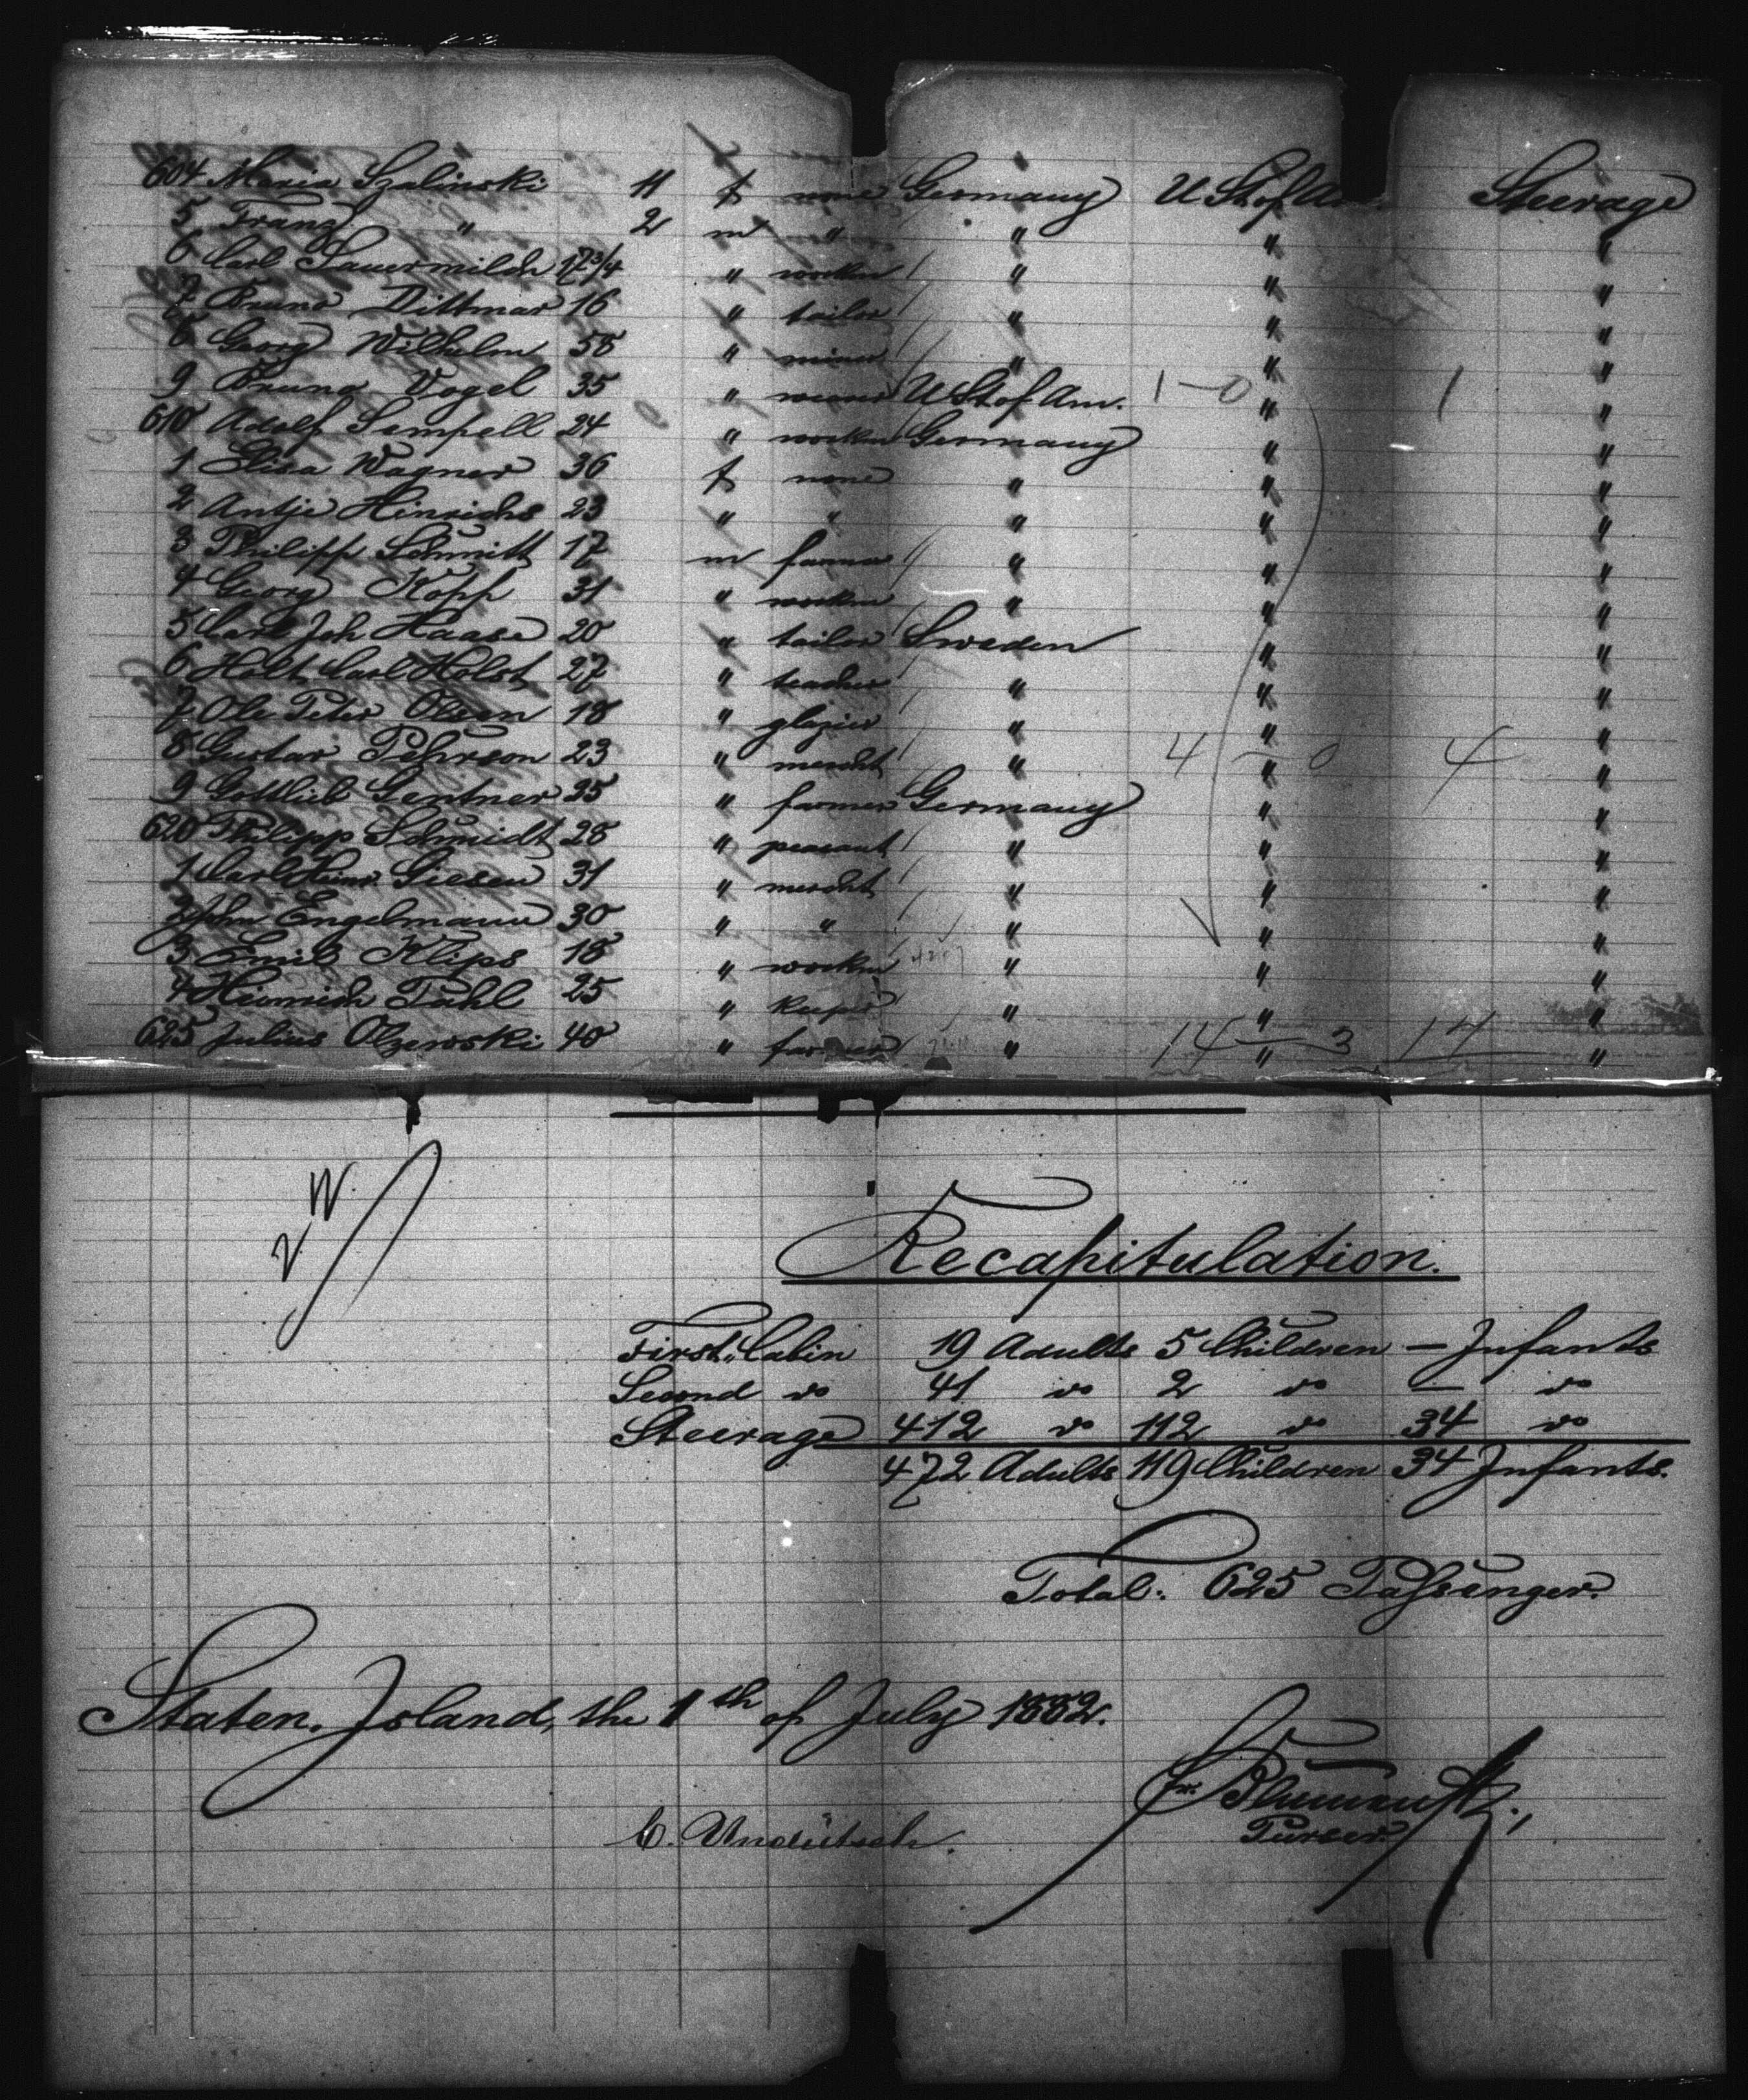 604 Maria Szalinski 11 f none Germany U St of Am. Steerage
5 Franz " 2 m " " " "
6 Carl Sauermilch 17 3/4 " workm " " "
7 Bruno Dittmar 16 " tailor " " "
8 Georg Wilhelm 58 " miner " " "
9 Bruno Vogel 35 " weaver U St of Am. 1-0 " 1 "
610 Adolf Sempell 24 " workm Germany " "
1 Elisa Wagner 36 f none " " "
2 Antje Hinrichs 23 " " " " "
3 Philipp Schmitt 17 m farmer " " "
4 Georg Kopp 31 " workm " " "
5 Carl Joh Haase 20 " tailor Sweden " "
6 Holt Carl Holst 27 " teacher " " "
7 Ole Peter Olsen 18 " glazier " " "
8 Gustav Pehrson 23 " mercht " 4-0 " 4 "
9 Gottlieb Gentner 25 " farmer Germany " "
620 Philipp Schmidt 28 " peasant " " "
1 Carl Heinr Giesen 31 " mercht " " "
2 John Engelmann 30 " " " " "
3 Emil Klips 18 " workm " " "
4 Heinrich Tuhl 25 " " " "
625 Julius Olzewski 40 " farmer " 14-3 " 14 "
Recapitulation.
First Cabin 19 Adults 5 Children — Infants
Second do 41 do 2 do — do
Steerage 412 do 112 do 34 do
472 Adults 119 Children 34 Infants.
Total: 625 Passenger.
Staten Island, the 1th of July 1882.
C. Undütsch.
Purser